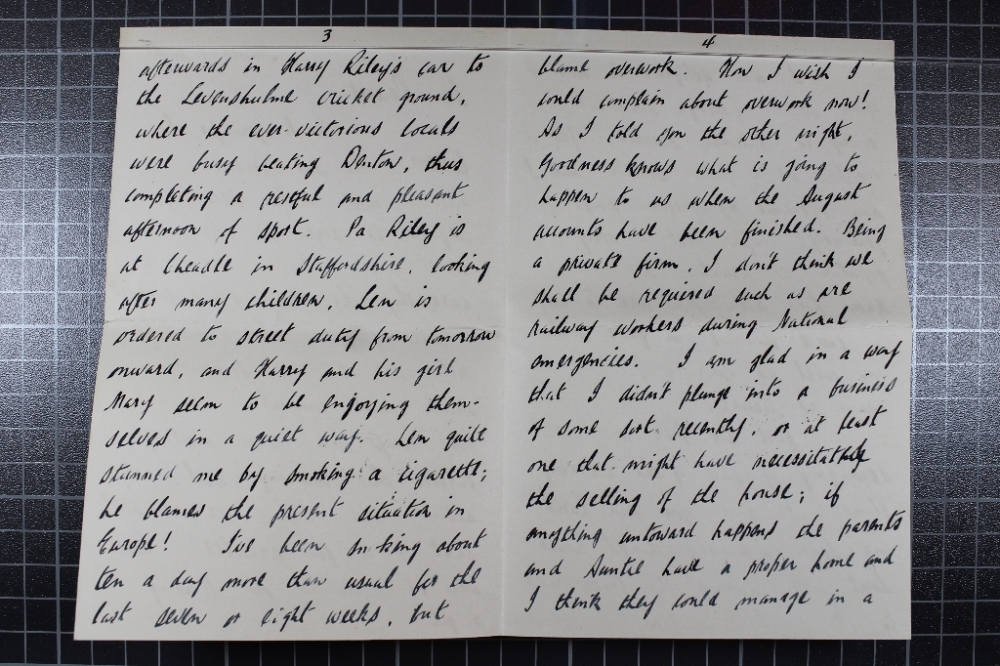 3
afterwards in Harry Riley's car to
the Levenshulme cricket ground,
where the ever-victorious locals
were busy beating Denton, thus
completing a restful and pleasant
afternoon of sport. Pa Riley is
at Cheadle in Staffordshire, looking
after many children, Len is
ordered to street duty from tomorrow
onward, and Harry and his girl
Mary seem to be enjoying them-
selves in a quiet way. Len quite
stunned me by smoking a cigarette;
he blames the present situation in
Europe! I've been smoking about
ten a day more than usual for the
last seven or eight weeks, but
4
blame overwork. How I wish I
could complain about overwork now!
As I told you the other night,
Goodness knows what is going to
happen to us when the August
accounts have been finished. Being
a private firm, I don't think we
shall be required such as are
railway workers during National
emergencies. I am glad in a way
that I didn't plunge into a business
of some sort recently, or at least
one that might have necessitated
the selling of the house; if
anything untoward happens the parents
and Auntie have a proper home and
I think they could manage in a